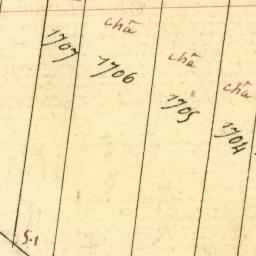 chã
1707
1706
chã
1705
chã
1704
5.1